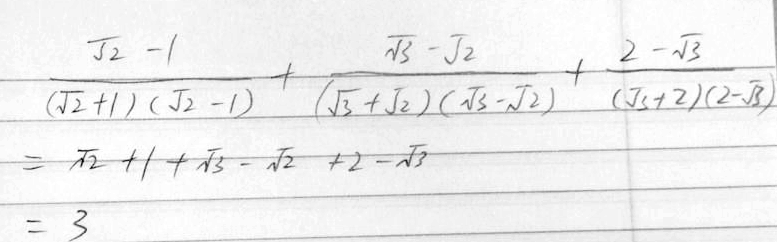 (√2 - 1)/((√2+1)(√2-1)) + (√3 - √2)/((√3+√2)(√3-√2)) + (2-√3)/((√3+2)(2-√3))
= √2 + 1 + √3 - √2 + 2 - √3
= 3